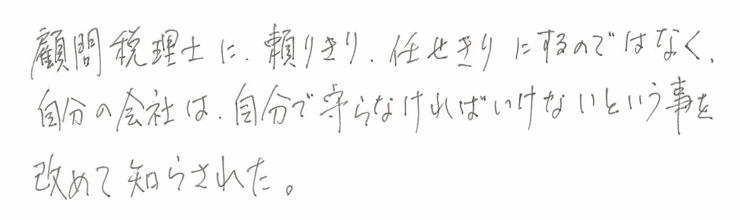 顧問税理士に、頼りきり、任せきりにするのではなく、
自分の会社は、自分で守らなければいけないという事を
改めて知らされた。